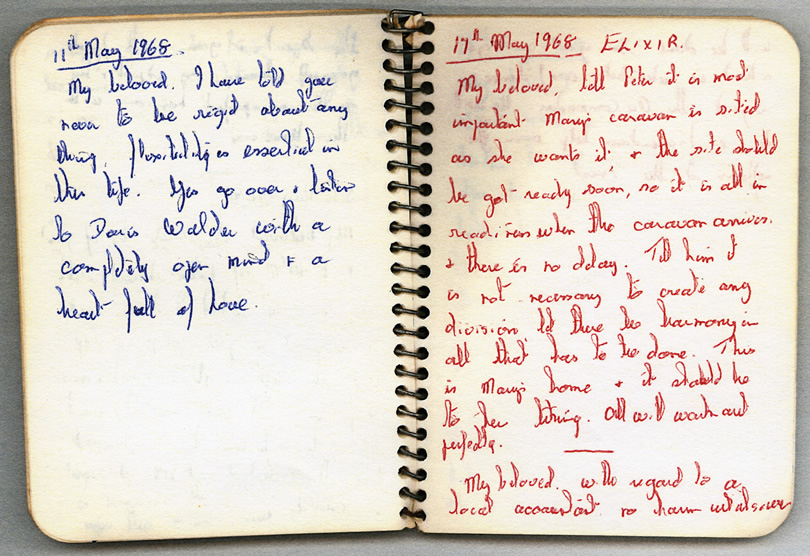 11th May 1968.
My beloved. I have told you
never to be rigid about any
thing, flexibility is essential in
this life. Yes go over & listen
to Doris Walder with a
completely open mind & a
heart full of love.
17th May 1968 ELIXIR.
My beloved, tell Peter it is most
important Mary's caravan is sited
as she wants it, & the site should
be got ready soon, so it is all in
readiness when the caravan arrives.
& there is no delay. Tell him it
is not necessary to create any
division, let there be harmony in
all that has to be done. This
is Mary's home & it should be
to her liking. All will work out
perfectly.
My beloved. with regard to a
local accountant no harm whatsoever